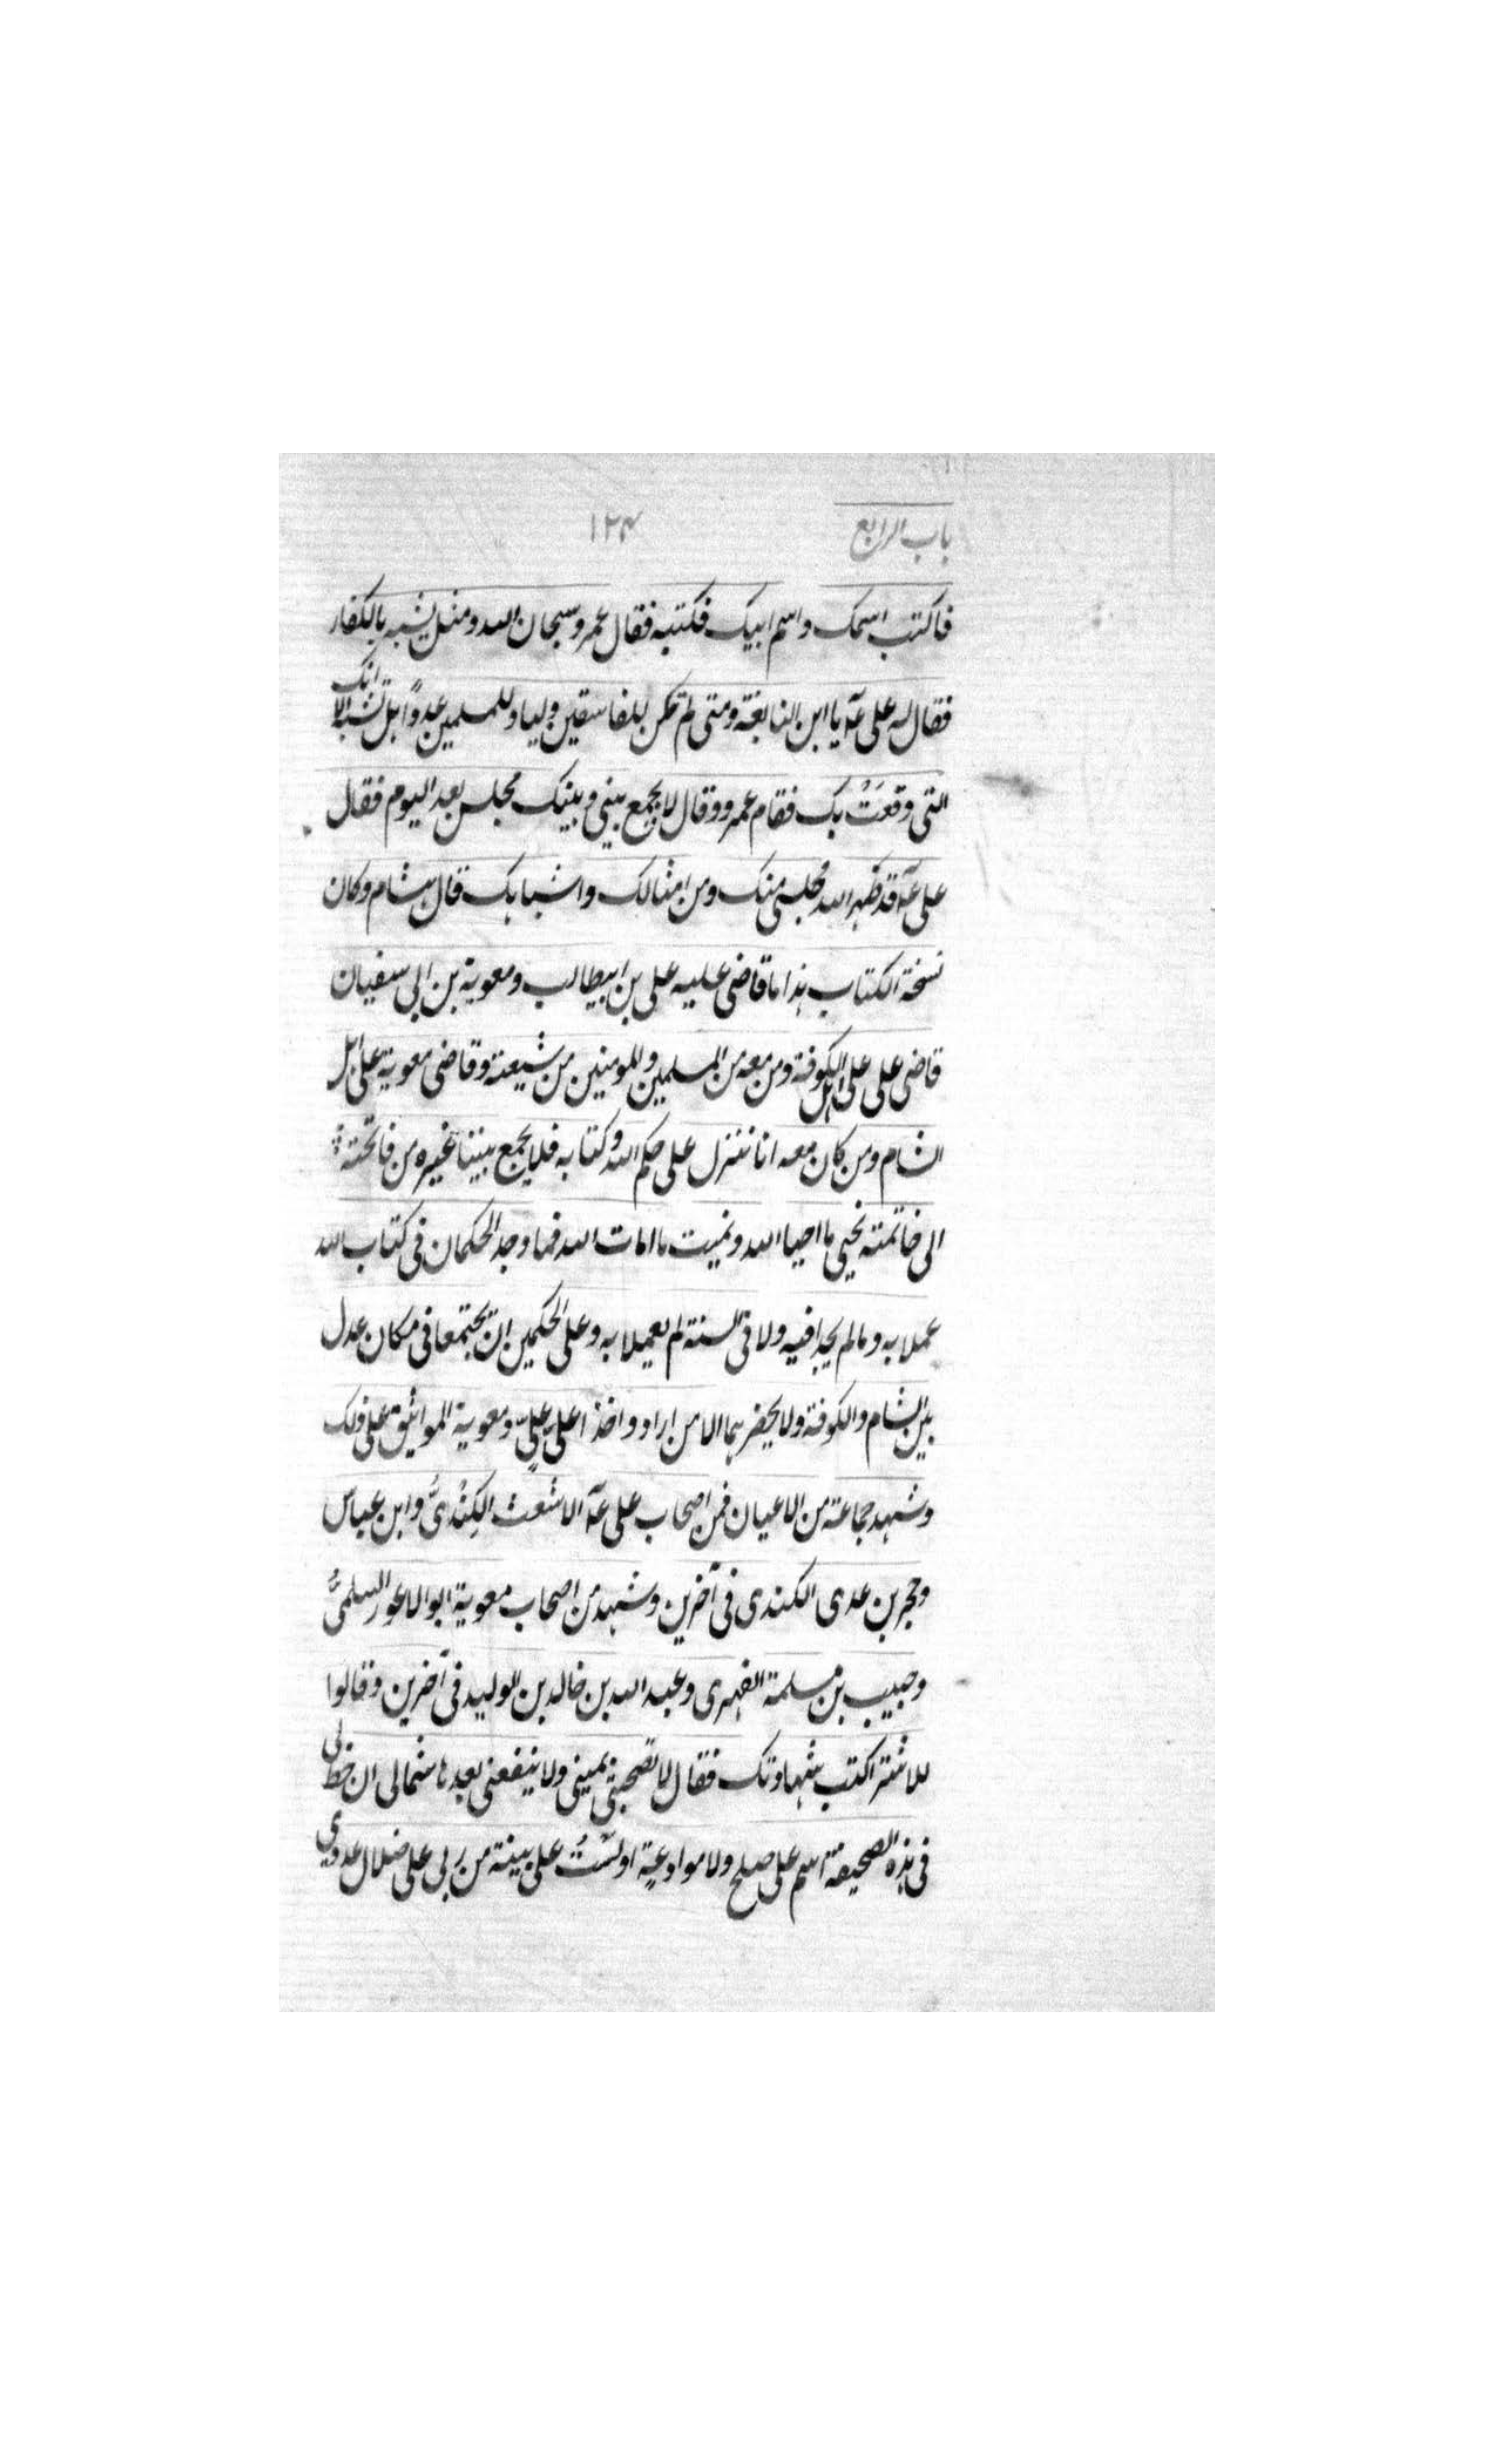 باب الرابع ١٢٤
فاكتب اسمك واسم ابيك فكتبه فقال عمرو سبحان الله ومثل يشبه بالكفار
فقال له على عۤه يا ابن النابغة ومتى لم تكن للفاسقين وليا وللمسلمين عدوًا هل تشبه الا امك
التى وقعَتْ بك فقام عمرو وقال لا يجمع بينى وبينك مجلس بعد اليوم فقال
على عۤه قد طهر الله مجلسى منك ومن امثالك واشباهك قال هشام وكان
نسخة الكتاب هذا ما قاضى عليه على بن ابيطالب ومعوية بن ابى سفيان
قاضى على على اهل الكوفة ومن معه من المسلمين والمومنين من شيعته وقاضى معوية على اهل
الشام ومن كان معه انا ننزل على حكم الله وكتابه فلا يجمع بيننا غيره من فاتحته
الى خاتمته نحيى ما احيا الله ونميت ما امات الله فما وجد الحكمان فى كتاب الله
عملا به وما لم يجدا فيه ولا فى السنة لم يعملا به وعلى الحكمين ان يجتمعا فى مكان عدل
بين الشام والكوفة ولا يحضرهما الا من اراد واخذا على علىٍّ ومعوية المواثيق على ذلك
وشهد جماعة من الاعيان فمن اصحاب على عۤه الاشعث الكِنْدىُّ وابن عباس
وحجر بن عدى الكندى فى آخرين وشهد من اصحاب معوية ابو الاعور السلمىُّ
وحبيب بن مسلمة الفهرى وعبد الله بن خالد بن الوليد فى آخرين وقالوا
للاشتر اكتب شهادتك فقال لا تصحبنى يمينى ولا ينفعنى بعدها شمالى ان خط لى
فى هذه الصحيفة اسم على صلح ولا موادعة اولَسْتُ على بينة من ربى على ضلال عدوى